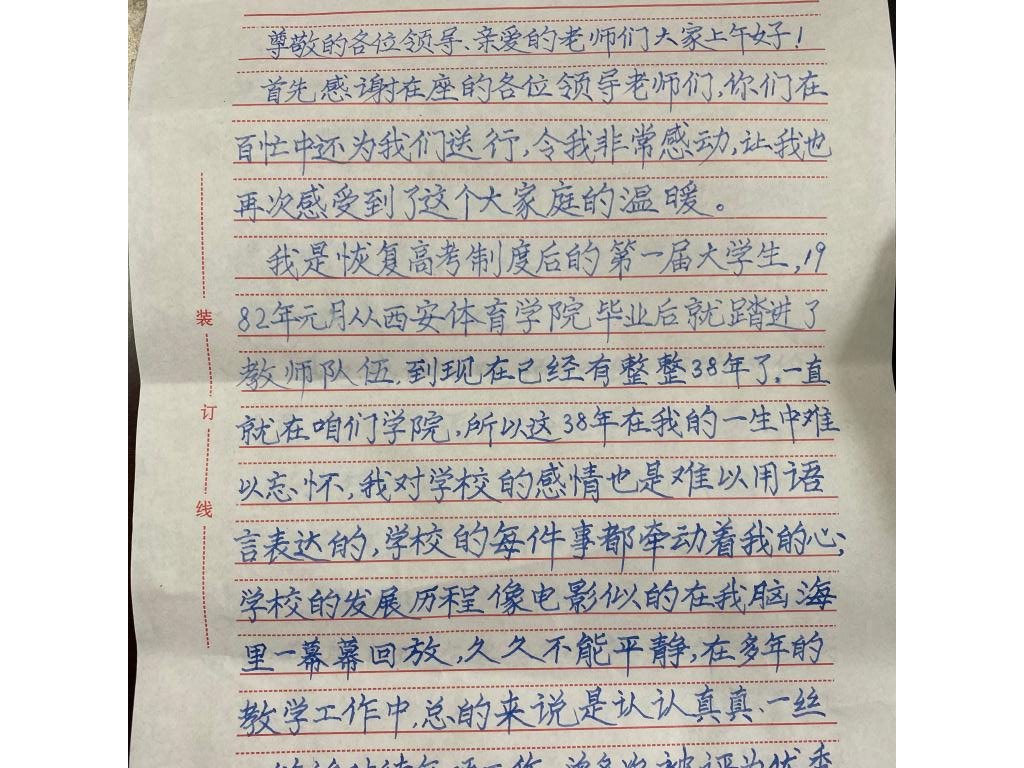 尊敬的各位领导、亲爱的老师们大家上午好!
首先感谢在座的各位领导老师们,你们在
百忙中还为我们送行,令我非常感动,让我也
再次感受到了这个大家庭的温暖。
我是恢复高考制度后的第一届大学生,19
82年元月从西安体育学院毕业后就踏进了
教师队伍,到现在已经有整整38年了,一直
就在咱们学院,所以这38年在我的一生中难
以忘怀,我对学校的感情也是难以用语
言表达的,学校的每件事都牵动着我的心;
学校的发展历程像电影似的在我脑海
里一幕幕回放,久久不能平静,在多年的
教学工作中,总的来说是认认真真、一丝
工作,曾多次被评为优秀
装
订
线